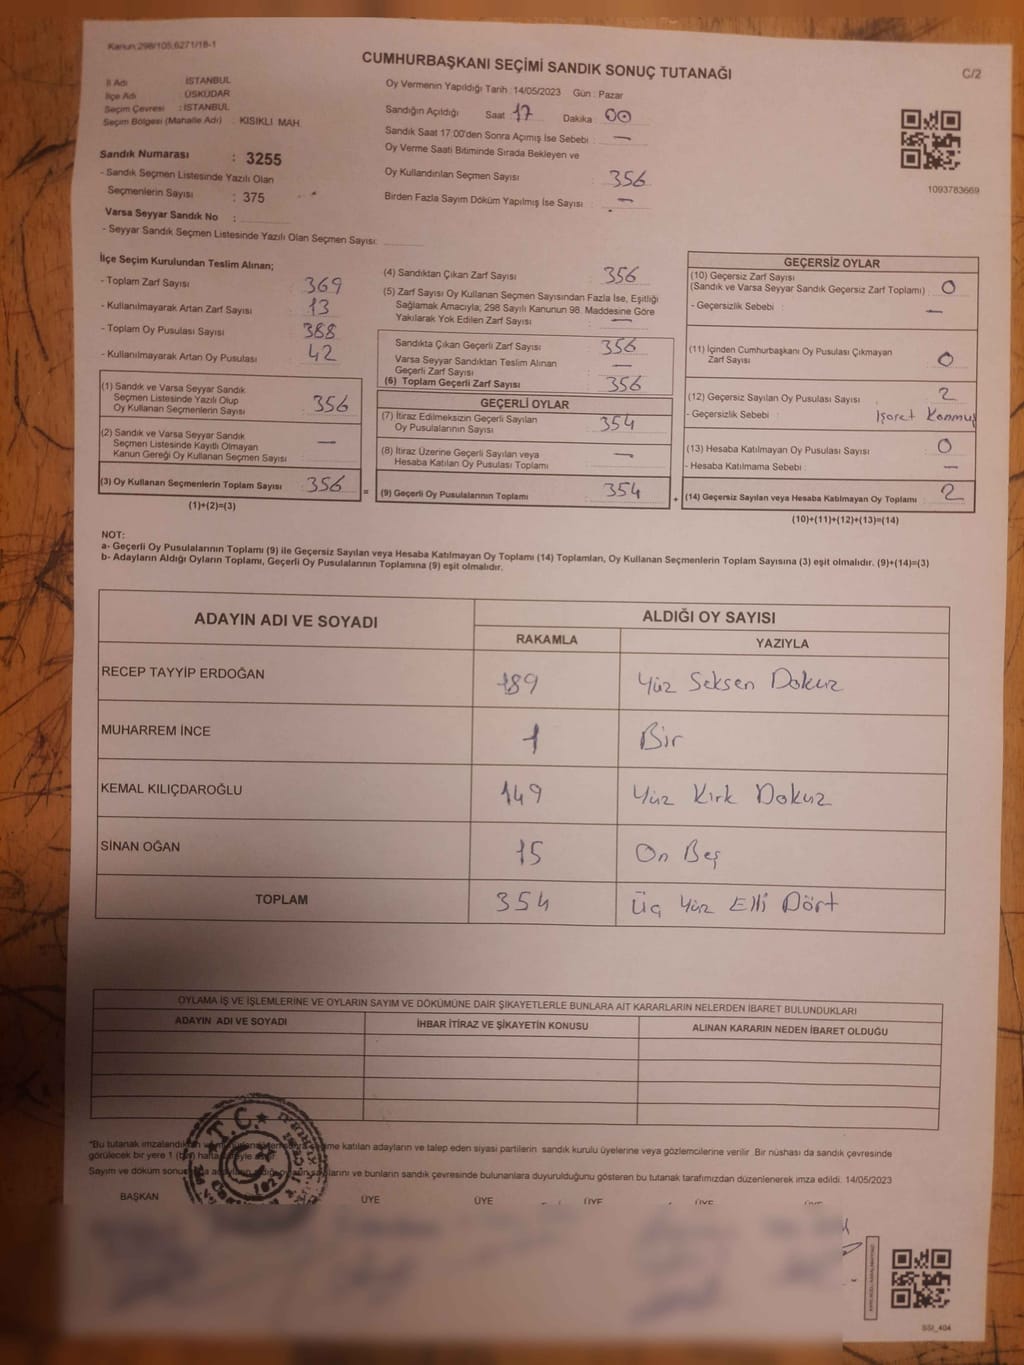 Kanun:298/105,6271/18-1
CUMHURBAŞKANI SEÇİMİ SANDIK SONUÇ TUTANAĞI
C/2
İl Adı : İSTANBUL
İlçe Adı : ÜSKÜDAR
Seçim Çevresi : İSTANBUL
Seçim Bölgesi (Mahalle Adı) : KISIKLI MAH.
Sandık Numarası : 3255
- Sandık Seçmen Listesinde Yazılı Olan
Seçmenlerin Sayısı : 375
Varsa Seyyar Sandık No :
- Seyyar Sandık Seçmen Listesinde Yazılı Olan Seçmen Sayısı:
Oy Vermenin Yapıldığı Tarih : 14/05/2023 Gün : Pazar
Sandığın Açıldığı Saat : 17 Dakika : 00
Sandık Saat 17.00'den Sonra Açımış İse Sebebi : —
Oy Verme Saati Bitiminde Sırada Bekleyen ve
Oy Kullandırılan Seçmen Sayısı : 356
Birden Fazla Sayım Döküm Yapılmış İse Sayısı : —
1093783669
İlçe Seçim Kurulundan Teslim Alınan;
- Toplam Zarf Sayısı : 369
- Kullanılmayarak Artan Zarf Sayısı : 13
- Toplam Oy Pusulası Sayısı : 388
- Kullanılmayarak Artan Oy Pusulası : 42
(1) Sandık ve Varsa Seyyar Sandık
Seçmen Listesinde Yazılı Olup
Oy Kullanan Seçmenlerin Sayısı : 356
(2) Sandık ve Varsa Seyyar Sandık
Seçmen Listesinde Kayıtlı Olmayan
Kanun Gereği Oy Kullanan Seçmen Sayısı : —
(3) Oy Kullanan Seçmenlerin Toplam Sayısı : 356
(1)+(2)=(3)
(4) Sandıktan Çıkan Zarf Sayısı : 356
(5) Zarf Sayısı Oy Kullanan Seçmen Sayısından Fazla İse, Eşitliği
Sağlamak Amacıyla, 298 Sayılı Kanunun 98. Maddesine Göre
Yakılarak Yok Edilen Zarf Sayısı : —
Sandıkta Çıkan Geçerli Zarf Sayısı : 356
Varsa Seyyar Sandıktan Teslim Alınan
Geçerli Zarf Sayısı : —
(6) Toplam Geçerli Zarf Sayısı : 356
GEÇERLİ OYLAR
(7) İtiraz Edilmeksizin Geçerli Sayılan
Oy Pusulalarının Sayısı : 354
(8) İtiraz Üzerine Geçerli Sayılan veya
Hesaba Katılan Oy Pusulası Toplamı : —
= (9) Geçerli Oy Pusulalarının Toplamı : 354
GEÇERSİZ OYLAR
(10) Geçersiz Zarf Sayısı
(Sandık ve Varsa Seyyar Sandık Geçersiz Zarf Toplamı) : 0
- Geçersizlik Sebebi : —
(11) İçinden Cumhurbaşkanı Oy Pusulası Çıkmayan
Zarf Sayısı : 0
(12) Geçersiz Sayılan Oy Pusulası Sayısı : 2
- Geçersizlik Sebebi : İşaret Konmuş
(13) Hesaba Katılmayan Oy Pusulası Sayısı : 0
- Hesaba Katılmama Sebebi : —
+ (14) Geçersiz Sayılan veya Hesaba Katılmayan Oy Toplamı : 2
(10)+(11)+(12)+(13)=(14)
NOT:
a- Geçerli Oy Pusulalarının Toplamı (9) ile Geçersiz Sayılan veya Hesaba Katılmayan Oy Toplamı (14) Toplamları, Oy Kullanan Seçmenlerin Toplam Sayısına (3) eşit olmalıdır. (9)+(14)=(3)
b- Adayların Aldığı Oyların Toplamı, Geçerli Oy Pusulalarının Toplamına (9) eşit olmalıdır.
ADAYIN ADI VE SOYADI
ALDIĞI OY SAYISI
RAKAMLA YAZIYLA
RECEP TAYYİP ERDOĞAN 189 Yüz Seksen Dokuz
MUHARREM İNCE 1 Bir
KEMAL KILIÇDAROĞLU 149 Yüz Kırk Dokuz
SİNAN OĞAN 15 On Beş
TOPLAM 354 Üç Yüz Elli Dört
OYLAMA İŞ VE İŞLEMLERİNE VE OYLARIN SAYIM VE DÖKÜMÜNE DAİR ŞİKAYETLERLE BUNLARA AİT KARARLARIN NELERDEN İBARET BULUNDUKLARI
ADAYIN ADI VE SOYADI İHBAR İTİRAZ VE ŞİKAYETİN KONUSU ALINAN KARARIN NEDEN İBARET OLDUĞU
T.C.
*Bu tutanak katılan adayların ve talep eden siyasi partilerin sandık kurulu üyelerine veya gözlemcilerine verilir. Bir nüshası da sandık çevresinde
görülecek bir yere 1 (bir) hafta
Sayım ve döküm bunların sandık çevresinde bulunanlara duyurulduğunu gösteren bu tutanak tarafımızdan düzenlenerek imza edildi. 14/05/2023
BAŞKAN ÜYE ÜYE ÜYE ÜYE
SSI_404